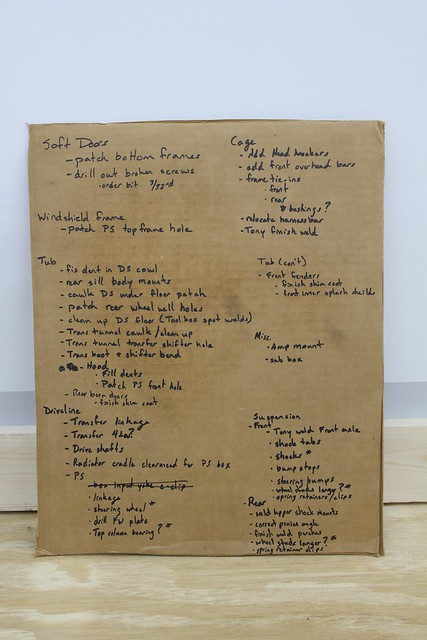 Soft Doors
- patch bottom frames
- drill out broken screws
· order bit 3/32nd
Windshield frame
- patch PS top frame hole
Tub
- fix dent in DS cowl
- rear sill body mounts
- caulk DS under floor patch
- patch rear wheel well holes
- clean up DS floor (Tool box spot welds)
- Trans tunnel caulk/clean up
- Trans tunnel transfer shifter hole
- Trans boot & shifter bend
- Hood
· Fill dents
· Patch PS front hole
- Rear barn doors
- finish skim coat
Driveline
- Transfer linkage
- Transfer
- Drive shafts
- Radiator cradle clearanced for PS box
- PS
- box input yoke c-clip
· linkage
· steering wheel *
· drill FW plate
· Top column bearing? *
Cage
- Add Head knockers
- add front overhead bars
- frame tie-ins
· front
· rear
* bushings?
- relocate harness bar
- Tony finish weld
Tub (con't)
- Front fenders
- finish skim coat
- front inner splash shields
Misc.
- Amp mount
- sub box
Suspension
- Front
- Tony weld Front axle
· shock tabs
· shocks *
· bump stops
· steering bumps
· wheel studs longer? *
· spring retainers/clips
- Rear
- weld upper shock mounts
- correct pinion angle
- finish weld perches
- wheel studs longer? *
- spring retainer clips